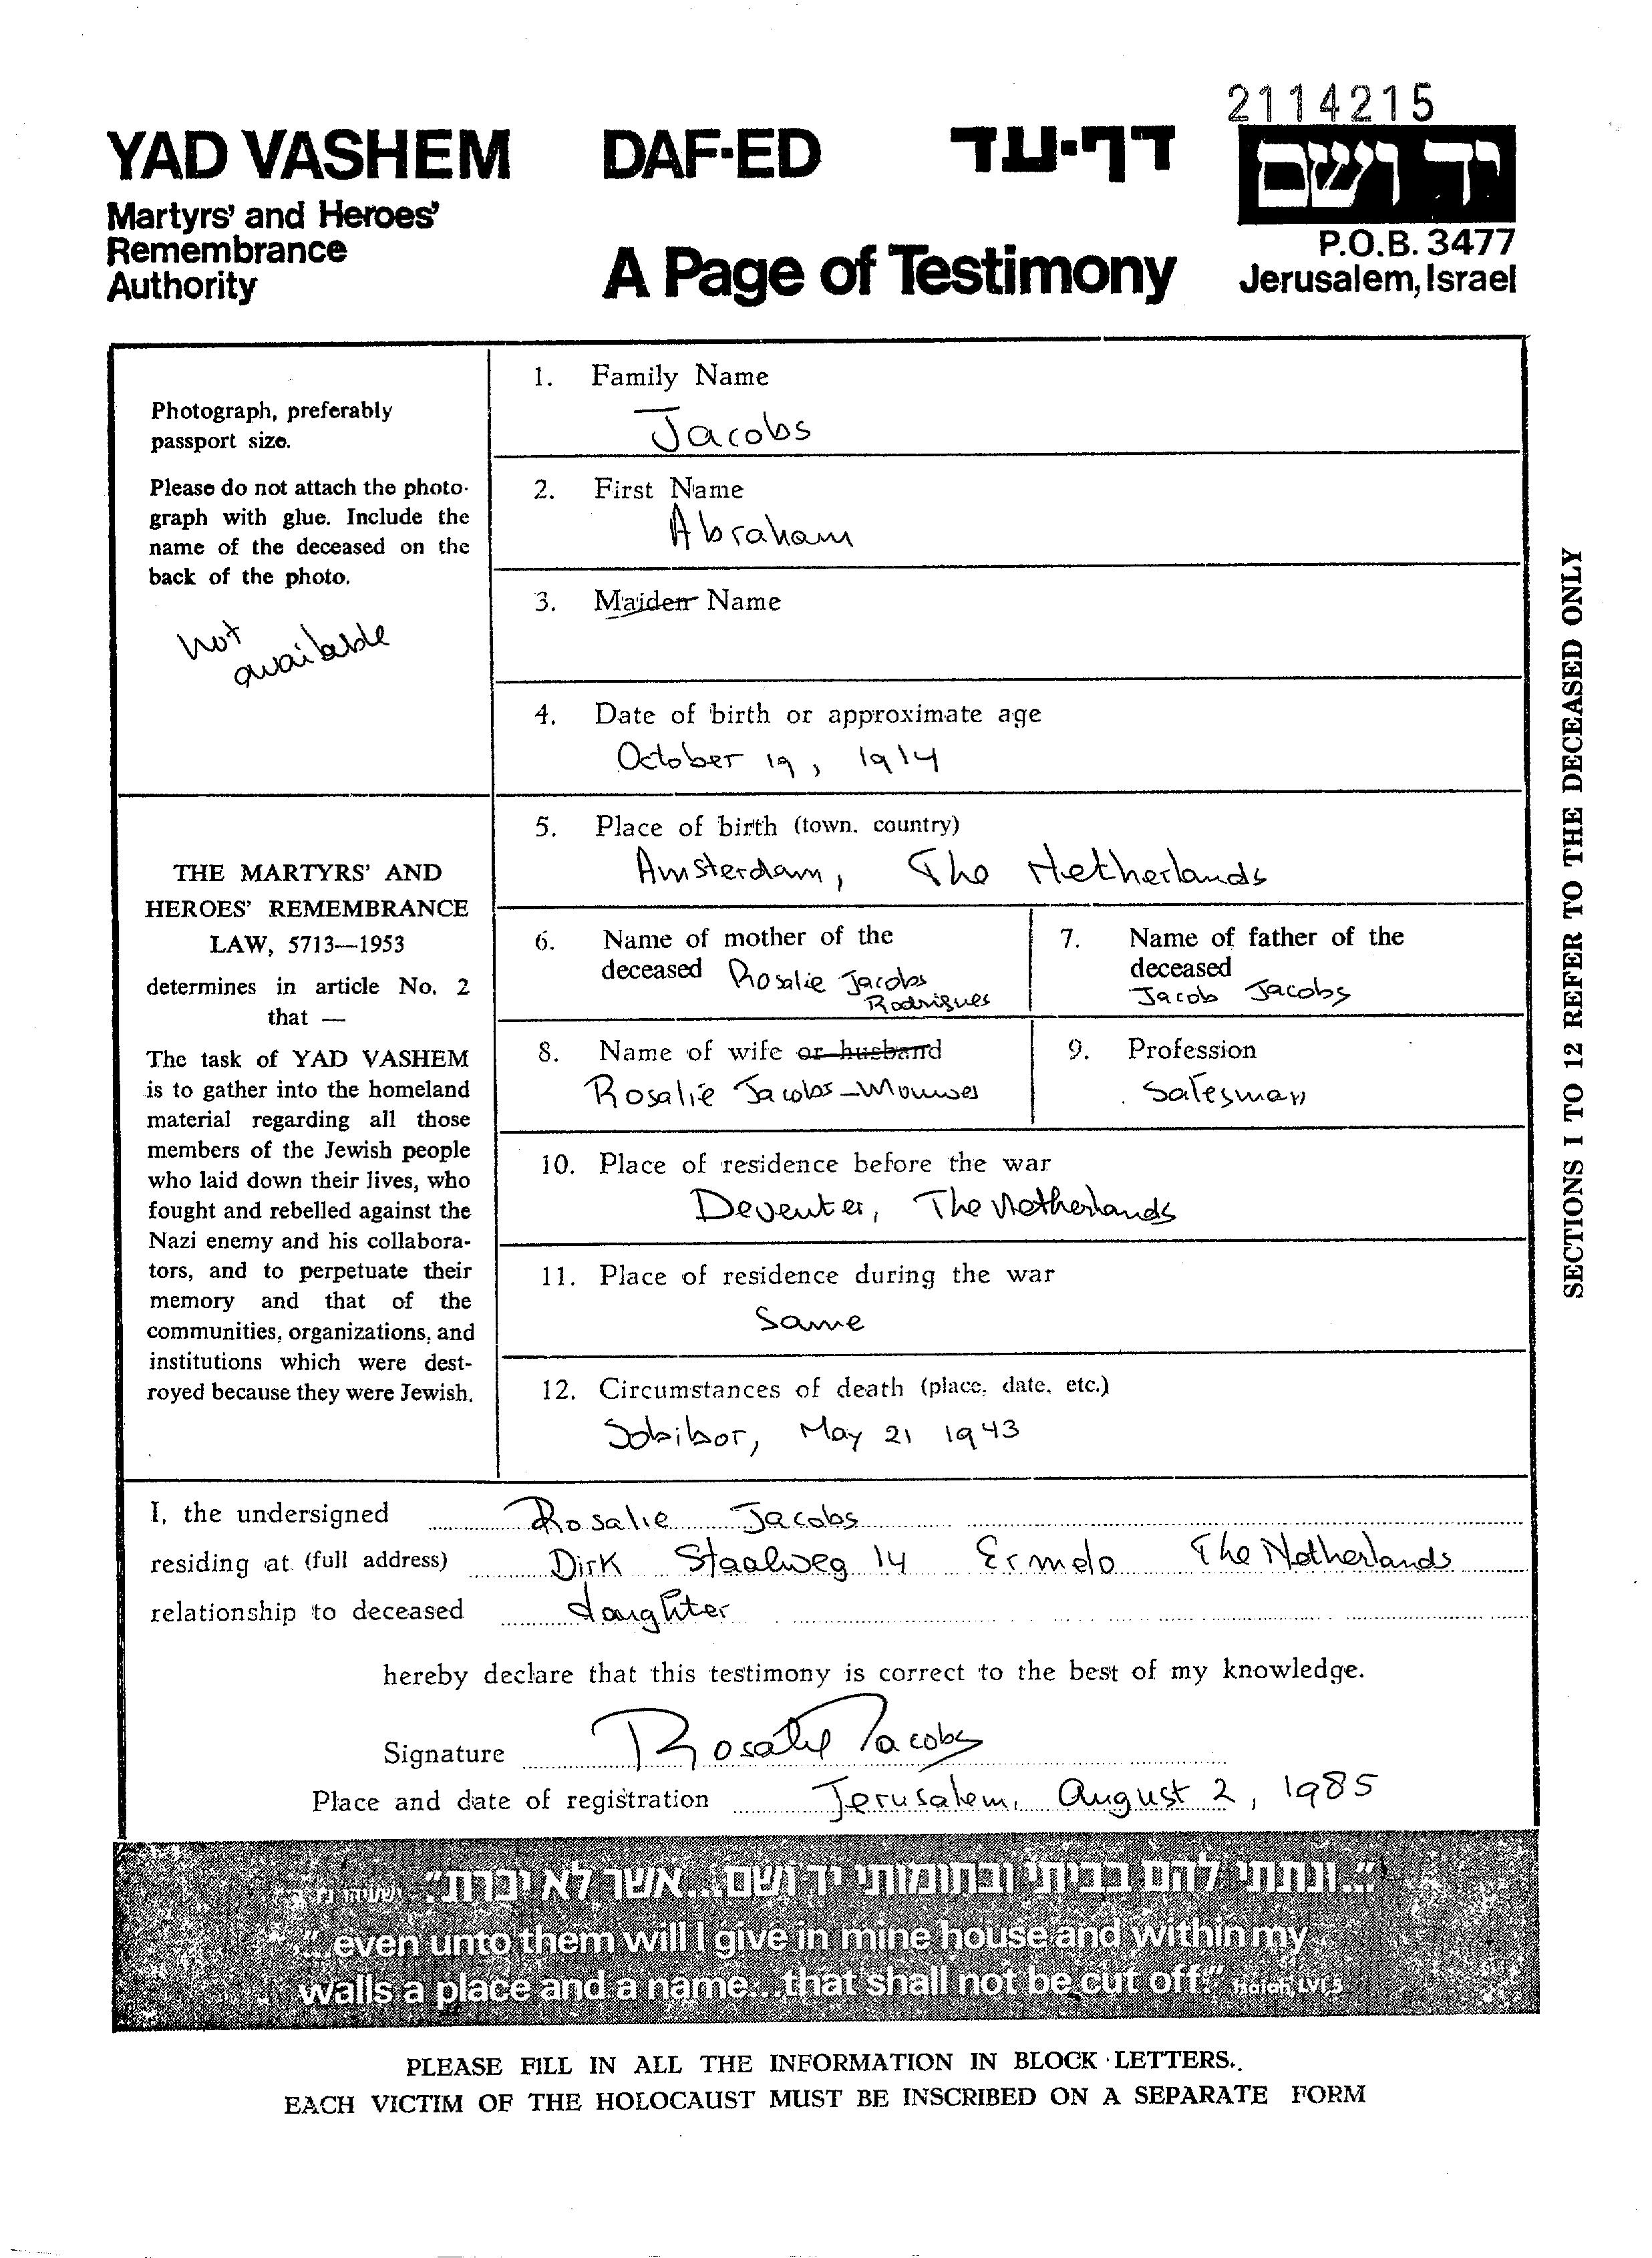 2114215
YAD VASHEM DAF-ED דף-עד יד ושם
Martyrs' and Heroes'
Remembrance
Authority
A Page of Testimony
P.O.B. 3477
Jerusalem, Israel
Photograph, preferably
passport size.
Please do not attach the photo-
graph with glue. Include the
name of the deceased on the
back of the photo.
not
available
THE MARTYRS' AND
HEROES' REMEMBRANCE
LAW, 5713—1953
determines in article No. 2
that —
The task of YAD VASHEM
is to gather into the homeland
material regarding all those
members of the Jewish people
who laid down their lives, who
fought and rebelled against the
Nazi enemy and his collabora-
tors, and to perpetuate their
memory and that of the
communities, organizations, and
institutions which were dest-
royed because they were Jewish.
1. Family Name
Jacobs
2. First Name
Abraham
3. Maiden Name
4. Date of birth or approximate age
October 19, 1914
5. Place of birth (town, country)
Amsterdam, The Netherlands
6. Name of mother of the
deceased Rosalie Jacobs
Rodrigues
7. Name of father of the
deceased
Jacob Jacobs
8. Name of wife or husband
Rosalie Jacobs-Mouwes
9. Profession
Salesman
10. Place of residence before the war
Deventer, The Netherlands
11. Place of residence during the war
Same
12. Circumstances of death (place, date, etc.)
Sobibor, May 21 1943
SECTIONS 1 TO 12 REFER TO THE DECEASED ONLY
I, the undersigned Rosalie Jacobs
residing at (full address) Dirk Staalweg 14 Ermelo The Netherlands
relationship to deceased daughter
hereby declare that this testimony is correct to the best of my knowledge.
Signature Rosalie Jacobs
Place and date of registration Jerusalem, August 2, 1985
"...ונתתי להם בביתי ובחומותי יד ושם...אשר לא יכרת."
"...even unto them will I give in mine house and within my
walls a place and a name...that shall not be cut off." Isaiah, LVI, 5
PLEASE FILL IN ALL THE INFORMATION IN BLOCK LETTERS.
EACH VICTIM OF THE HOLOCAUST MUST BE INSCRIBED ON A SEPARATE FORM